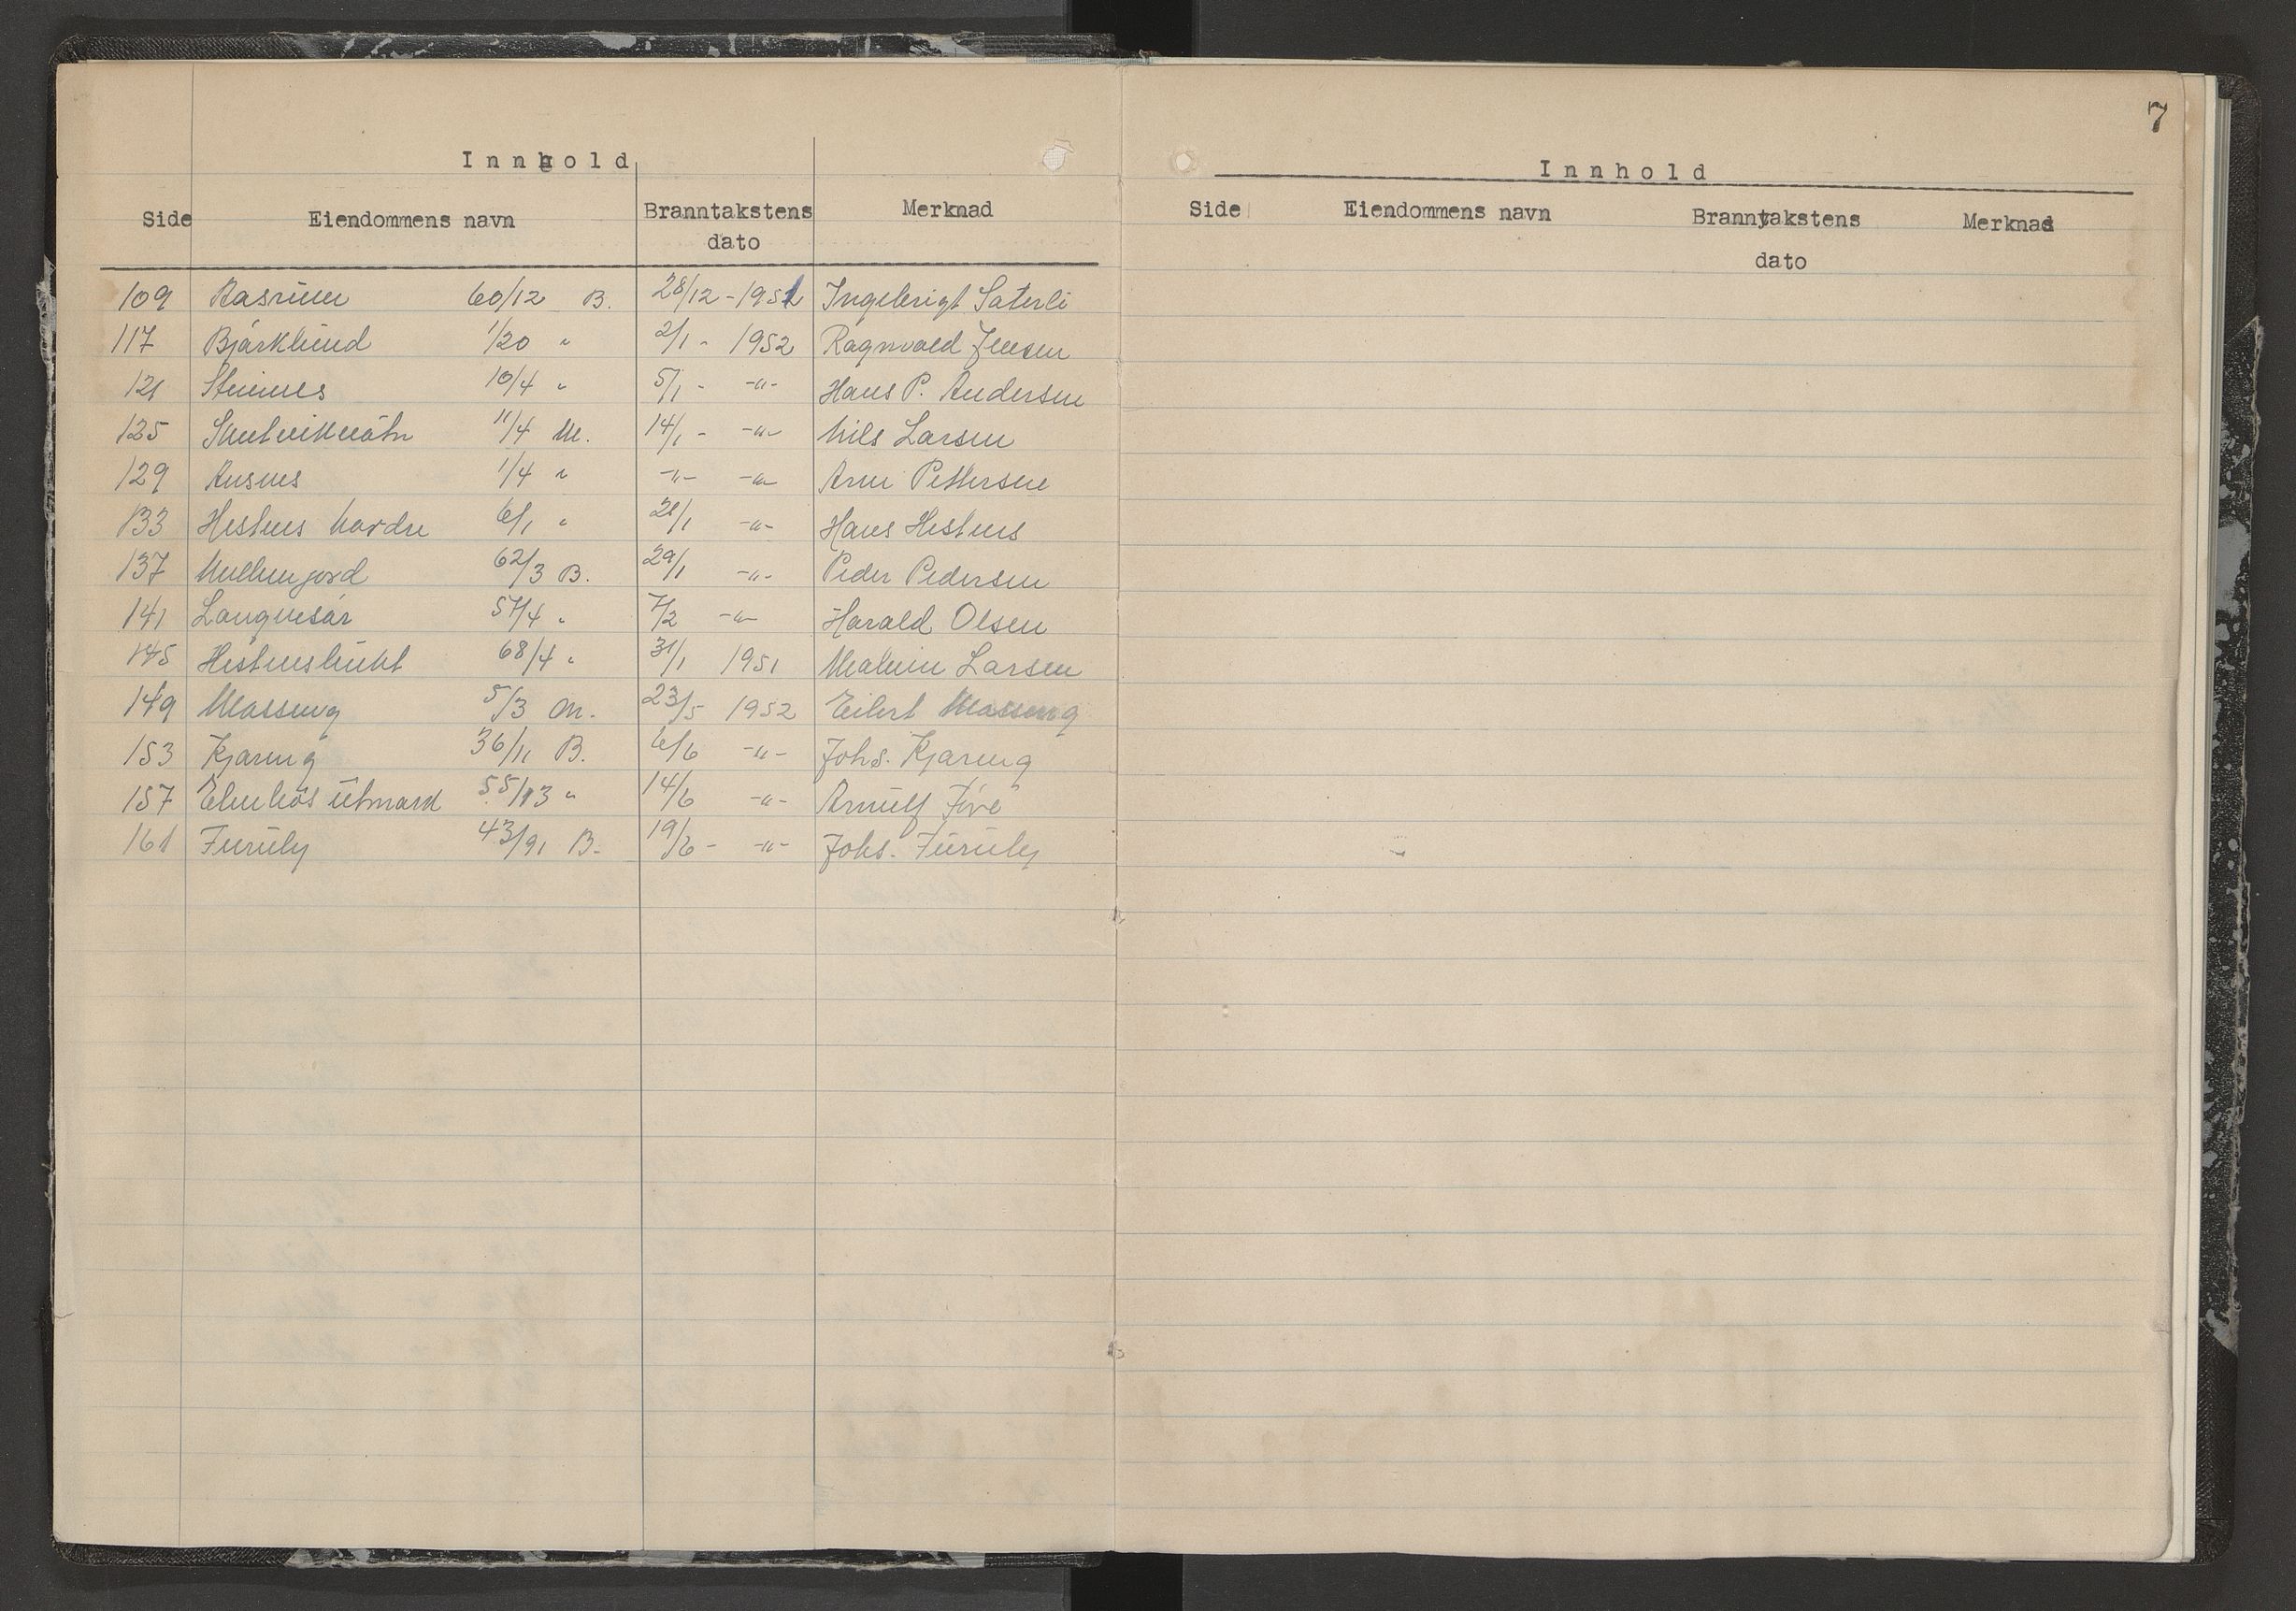 Innhold
Side Eiendommens navn Branntakstens dato Merknad
109 60/12 B. 28/12-1951 Ingebrigt Sæterli
117 Bjørklund 1/20 " 2/1 - 1952 Ragnvald Jensen
121 Steines 10/4 " 5/1 - -"- Hans P. Andersen
125 11/4 M. 14/1 - -"- Nils Larsen
129 Ausnes 1/4 " -"- -"- Arne Pettersen
133 Hestnes Nordre 6/1 " 21/1 -"- Hans Hestnes
137 Mellemjord 62/3 B. 29/1 -"- Peder Pedersen
141 57/4 " 7/2 -"- Harald Olsen
145 68/4 " 31/1 1951 Malvin Larsen
149 Masseng 5/3 M. 23/5 1952 Eilert Masseng
153 Kjæreng 36/11 B. 6/6 -"- Johs. Kjæreng
157 utmark 55/13 " 14/6 -"- Arnulf
161 Furuly 43/91 B. 19/6 - -"- Johs. Furuly
7
Innhold
Side Eiendommens navn Branntakstens dato Merknad